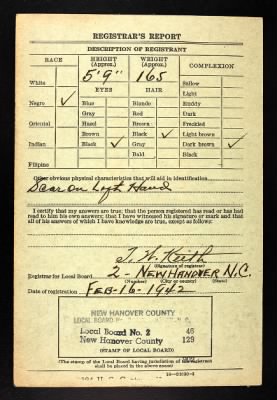 REGISTRAR'S REPORT
DESCRIPTION OF REGISTRANT
RACE HEIGHT (Approx.) WEIGHT (Approx.) COMPLEXION
White 5'9" 165 Sallow
EYES HAIR Light
Negro ✓ Blue Blonde Ruddy
Gray Red Dark
Oriental Hazel Brown Freckled
Brown Black ✓ Light brown
Indian Black ✓ Gray Dark brown ✓
Bald Black
Filipino
Other obvious physical characteristics that will aid in identification
Scar on Left Hand
I certify that my answers are true; that the person registered has read or has had
read to him his own answers; that I have witnessed his signature or mark and that
all of his answers of which I have knowledge are true, except as follows:
T. W. Keith
(Signature of registrar)
Registrar for Local Board 2 - NEW HANOVER N.C.
(Number) (City or county) (State)
Date of registration FEB-16-1942
NEW HANOVER COUNTY
LOCAL BOARD
Local Board No. 2 46
New Hanover County 129
(STAMP OF LOCAL BOARD)
(The stamp of the Local Board having jurisdiction of the registrant
shall be placed in the above space)